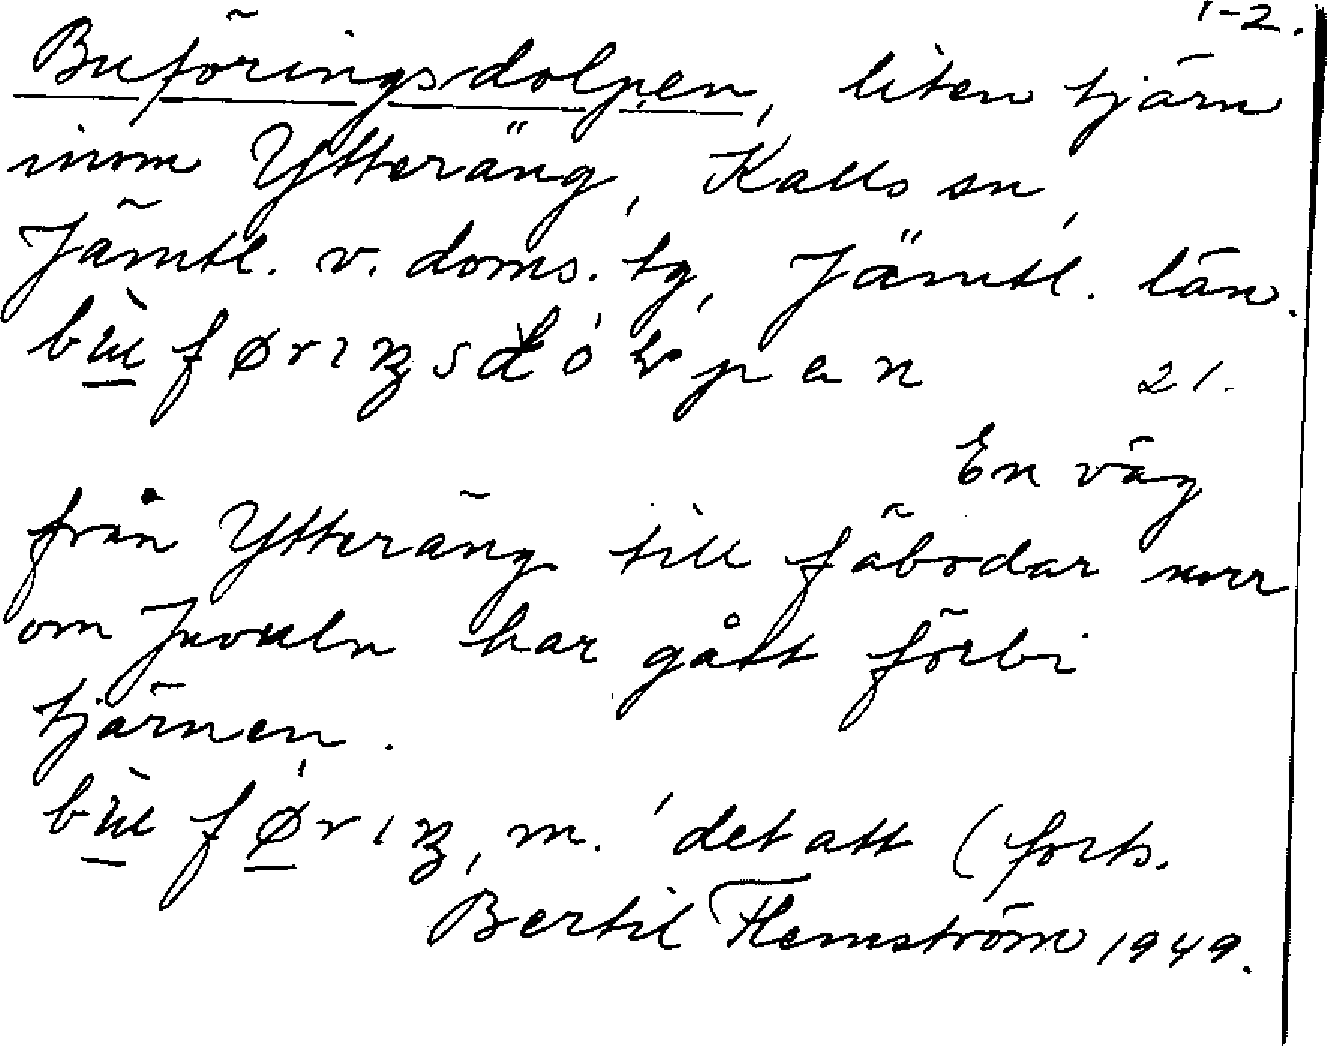 1-2.
Buföringsdolpen, liten tjärn
inom Ytteräng, Kalls sn,
Jämtl. v. doms. tg, Jämtl. län.
21.
En väg
från Ytteräng till fäbodar norr
om Juveln har gått förbi
tjärnen.
m. 'det att (forts.
Bertil Flemström 1949.